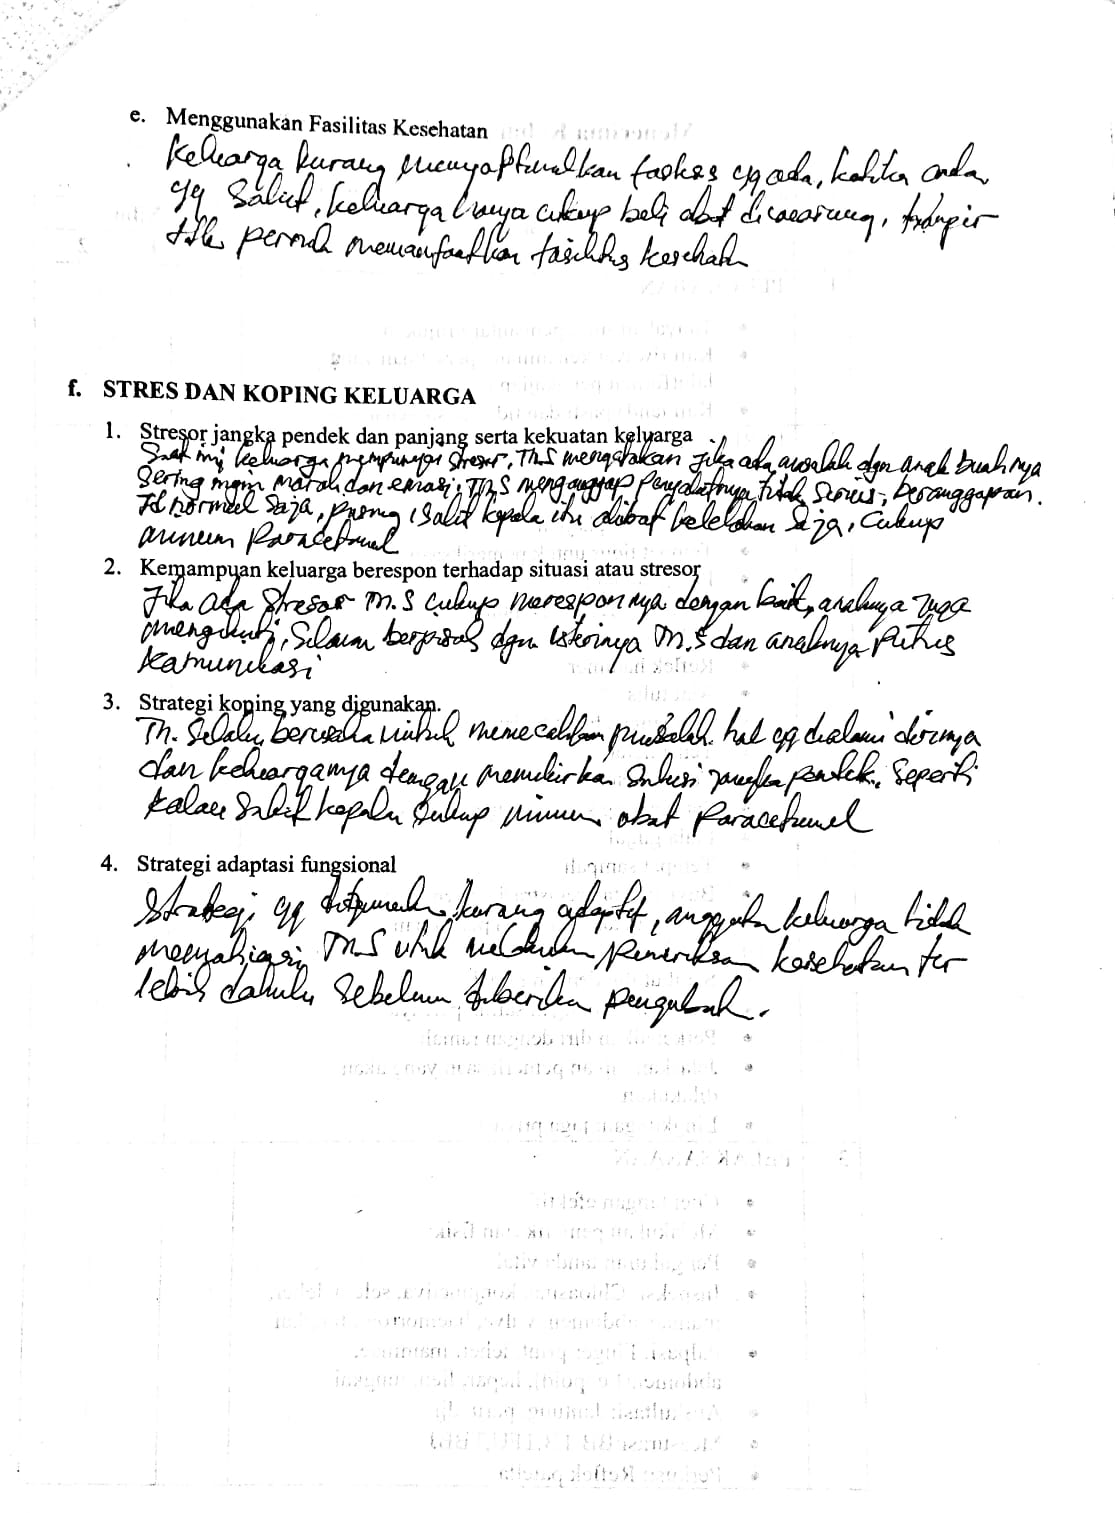 e. Menggunakan Fasilitas Kesehatan
Keluarga kurang faskes yg ada, ketika anda
yg sakit, keluarga hanya cukup beli obat diwarung, hampir
tdk pernah memanfaatkan fasilitas kesehatan
f. STRES DAN KOPING KELUARGA
1. Stresor jangka pendek dan panjang serta kekuatan keluarga
Saat ini keluarga mempunyai stresor, Tn.S mengatakan jika ada masalah dgn anak buahnya
Sering ingin marah dan emosi, Tn.S menganggap penyakitnya tidak serius, beranggapan
normal saja, pusing, sakit kepala itu akibat kelelahan saja, cukup
minum Paracetamol
2. Kemampuan keluarga berespon terhadap situasi atau stresor
Jika ada stresor Tn.S cukup meresponnya dengan baik, anaknya juga
selama berpisah dgn isterinya Tn.S dan anaknya putus
Komunikasi
3. Strategi koping yang digunakan.
Tn. Selalu berusaha untuk memecahkan masalah hal yg dialami dirinya
dan keluarganya dengan memikirkan solusi jangka pendek, seperti
kalau sakit kepala cukup minum obat Paracetamol
4. Strategi adaptasi fungsional
Strategi yg digunakan kurang adaptif, anggota keluarga tidak
Tn.S untuk melakukan pemeriksaan kesehatan ter
lebih dahulu sebelum diberikan pengobatan.